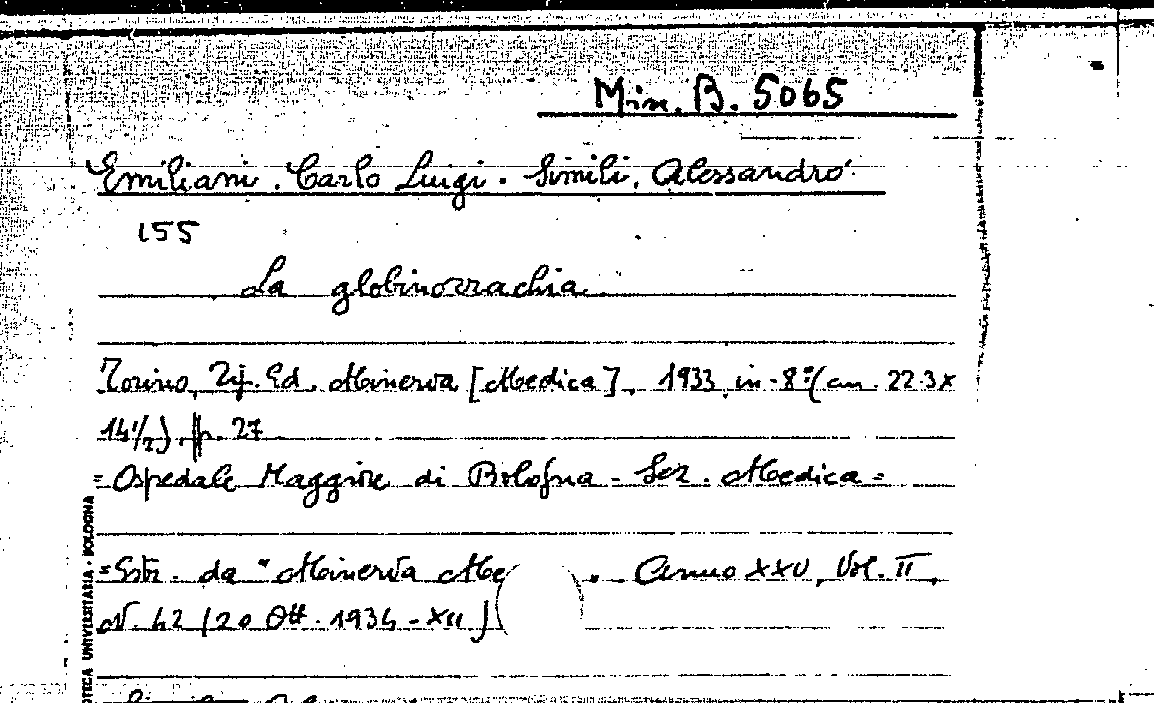 Min. B. 5065
Emiliani. Carlo Luigi. - Simili, Alessandro
155
La globinorrachia
Torino, Tip. Ed. Minerva [Medica], 1933, in-8°(cm. 22.3x
14½). p. 27
= Ospedale Maggiore di Bologna - Sez. Medica =
= Estr. da "Minerva Me . Anno XXV, Vol. II,
N. 42 (20 Ott. 1934 - XII)
OTECA UNIVERSITARIA - BOLOGNA